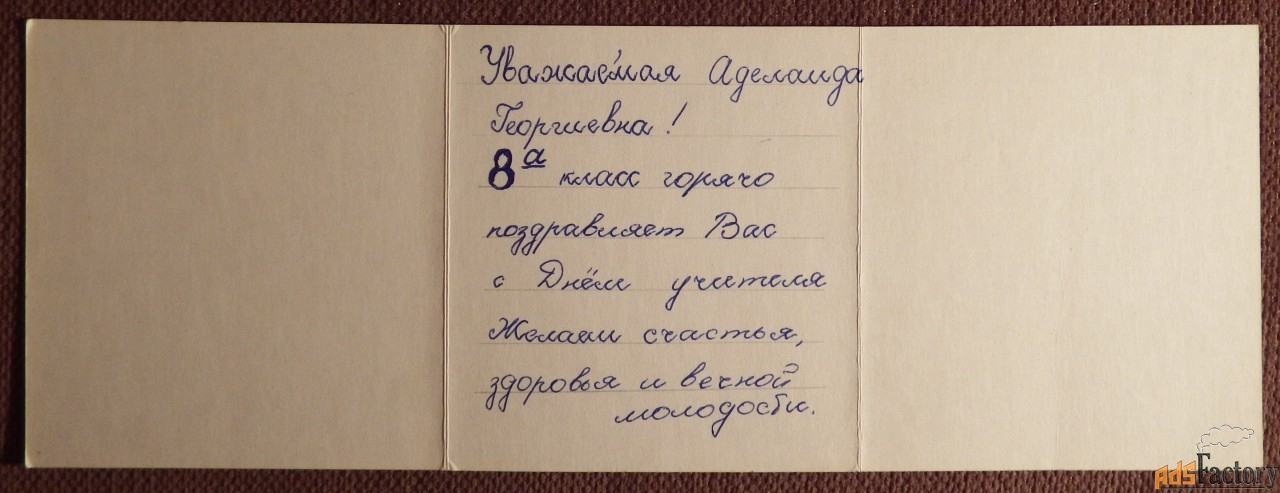 Уважаемая Аделаида
Георгиевна!
8а класс горячо
поздравляет Вас
с Днём учителя
Желаем счастья,
здоровья и вечной
молодости.
AdsFactory